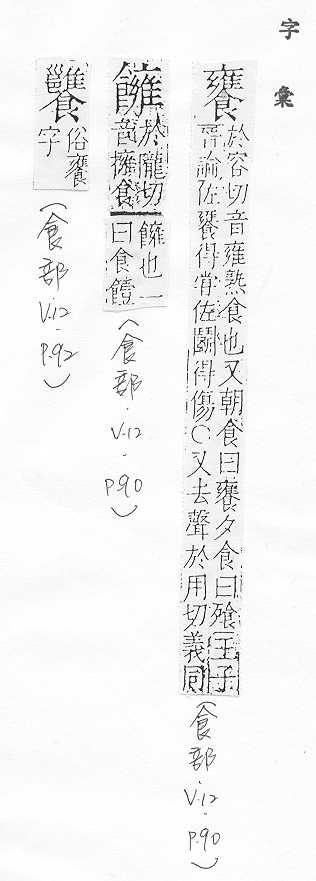 字彙
饔
於容切音雍熟食也又朝食曰饔夕食曰飱王子
晉諭佐饔得嘗佐鬭得傷○又去聲於用切義同
(食部·V.12·P.90)
饔
於隴切
音擁食
饔也一
曰食饐
(食部·V.12·P.90)
俗饔
字
(食部·V.12·P.92)